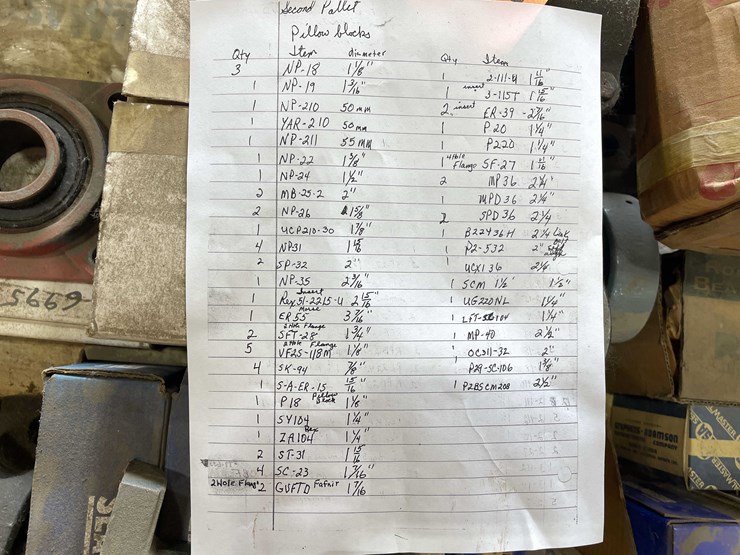 Second Pallet
Pillow blocks
Qty Item diameter
3 NP-18 1 1/8"
1 NP-19 1 3/16"
1 NP-210 50 mm
1 YAR-210 50 mm
1 NP-211 55 mm
1 NP-22 1 3/8"
1 NP-24 1 1/2"
2 MB-25-2 2"
2 NP-26 1 5/8"
1 UCP210-30 1 7/8"
4 NP31 1 15/16
2 SP-32 2"
1 NP-35 2 3/16"
Insert
1 Rex 51-2215-U 2 15/16"
Morse
1 ER55 3 7/16"
2 Hole Flange
2 SFT-28 1 3/4"
2 Hole Flange
5 VF2S-118M 1 1/8"
4 SK-94 7/8"
1 S-A-ER-15 15/16"
1 P18 Pillow Block 1 1/8"
1 SY104 1 1/4"
1 ZA104 Rex 1 1/4"
2 ST-31 1 15/16
4 SC-23 1 7/16"
2 Hole Flang 2 GVFTD Fafnir 1 7/16
Qty Item
1 2-111-U 1 11/16"
1 insert 3-115T 1 15/16"
2 insert ER-39 - 2 7/16"
1 P20 1 1/4"
1 P220 1 1/4"
1 4 Hole Flange SF-27 1 11/16"
2 MP36 2 1/4"
1 MPD36 2 1/4"
SPD36 2 1/4
1 B22436H 2 1/4 Link
1 P2-532 2"
UCX136 2 1/4
1 SCM 1 1/2 1 1/2"
1 UG220NL 1 1/4"
1 1 1/4"
1 MP-40 2 1/2"
OCS11-32 2"
P29-SC-106 1 3/8"
1 P2BSCM208 2 1/2"
6995
STEPHENS-ADAMSON
COMPANY